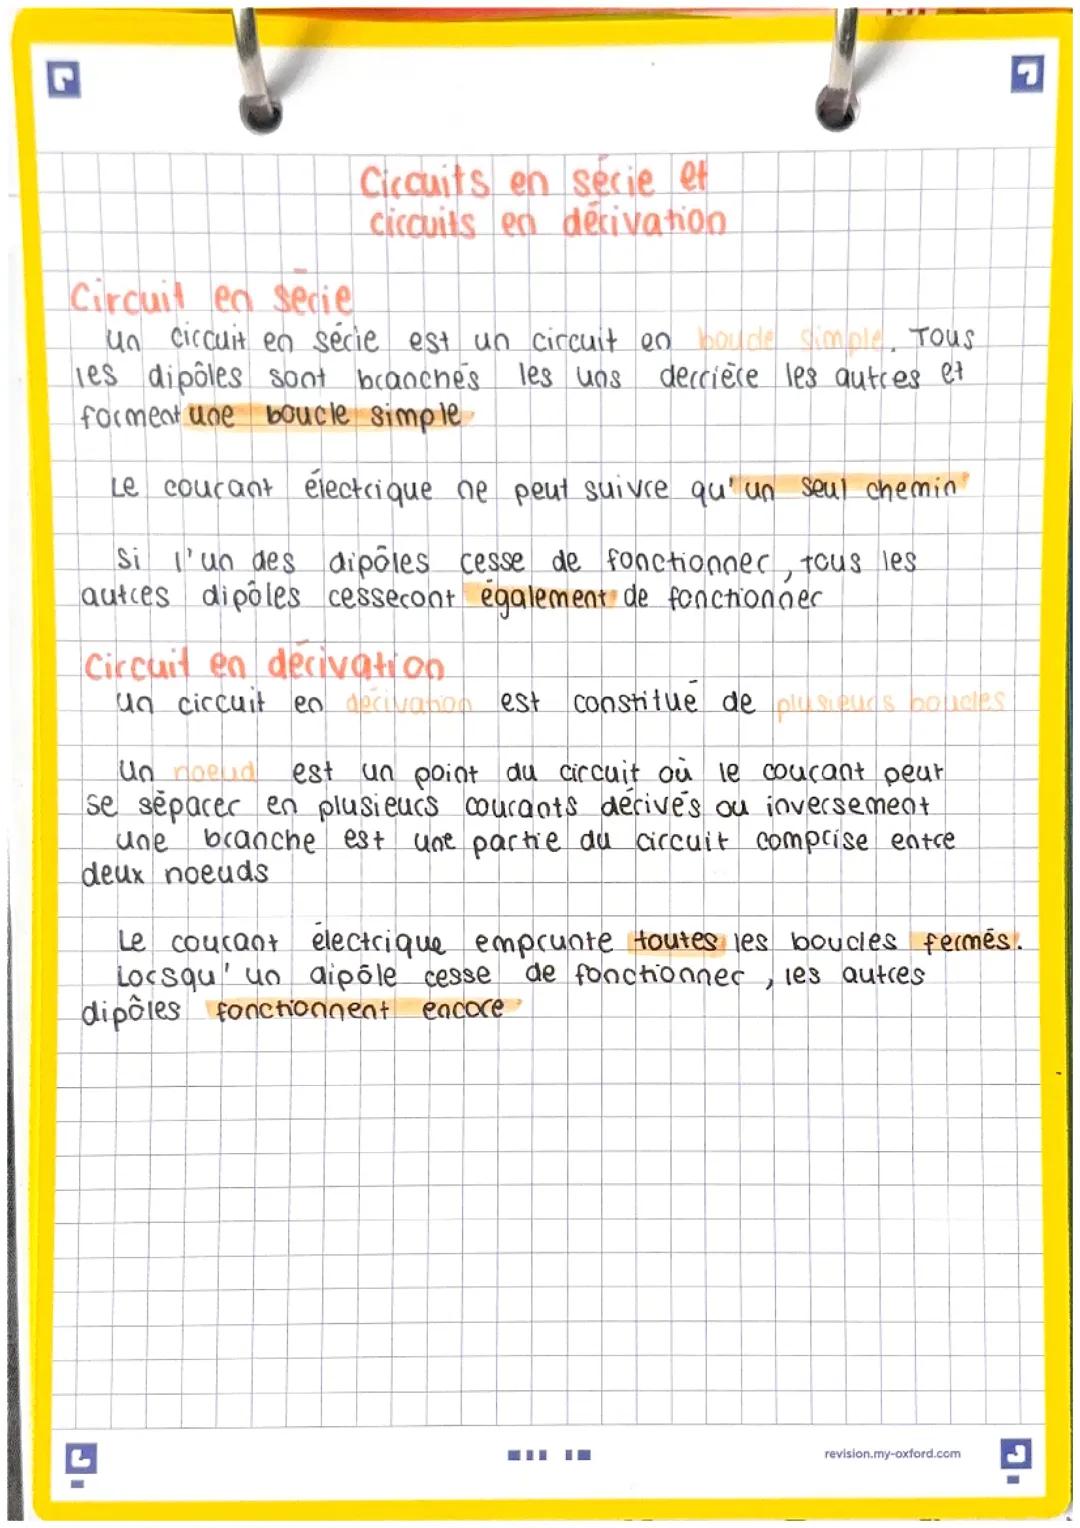 Circuits en série et
circuits en dérivation
Circuit en série
un circuit en série est un circuit en boucle simple. Tous
les dipôles sont branchés les uns derrière les autres et
forment une boucle simple
Le courant électrique ne peut suivre qu'un seul chemin
Si l'un des dipôles cesse de fonctionner, tous les
autres dipôles cesseront également de fonctionner
Circuit en dérivation
un circuit en dérivation est constitué de plusieurs boucles
Un noeud est un point du circuit où le courant peut
se séparer en plusieurs courants dérivés ou inversement
une branche est une partie du circuit comprise entre
deux noeuds
Le courant électrique emprunte toutes les boucles fermés.
Lorsqu'un dipôle cesse de fonctionner, les autres
dipôles fonctionnent encore
revision.my-oxford.com